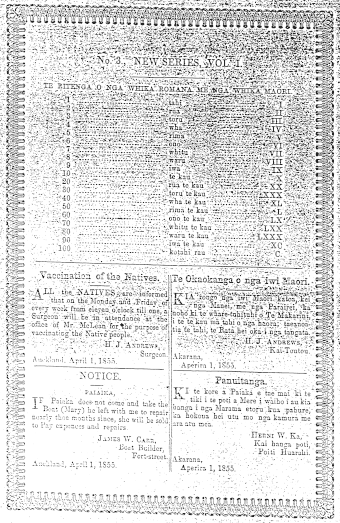 No. 3. NEW SERIES, VOL. 1.
TE RITENGA O NGA WHIKA ROMANA ME NGA WHIKA MAORI.
1 tahi I
2 II
3 toru III
4 wha IV
5 rima V
6 ono VI
7 whitu VII
8 waru VIII
9 iwa IX
10 te kau X
20 rua te kau XX
30 toru te kau XXX
40 wha te kau XL
50 rima te kau L
60 ono te kau LX
70 whitu te kau LXX
80 waru te kau LXXX
90 iwa te kau XC
100 kotahi rau C
Vaccination of the Natives.
ALL the NATIVES are informed
that on the Monday and Friday of
every week from eleven o'clock till one, a
Surgeon will be in attendance at the
office of Mr. McLean for the purpose of
vaccinating the Native people.
H. J. ANDREWS,
Surgeon.
Auckland, April 1, 1855.
Te Okaokanga o nga iwi Maori.
KIA rongo nga iwi Maori katoa, kei
nga Manei, me nga Parairei, ka
noho ki te whare-tuhituhi o Te Makarini,
i te te kau ma tahi o nga haora; taeanoa-
tia te tahi, te Rata hei oka i nga tangata
H. J. ANDREWS,
Kai-Tentou.
Akarana,
Aperira 1, 1855.
NOTICE.
PAIAIKA.
IF Paiaka does not come and take the
Boat (Mary) he left with me to repair
nearly months since, she will be sold
to Pay expences and repairs.
JAMES W. CARR,
Boat Builder,
Fort-street.
Auckland, April 1, 1855.
Panuitanga.
KI te kore a Paiaka e tae mai ki te
tiki i te poti a Mere i waiho i au kia
hanga i nga Marama etoru kua pahure,
ka hokona hei utu mo nga kamura me
ara utu mea.
HEMI W. KA,
Kai hanga poti,
Poiti Huarahi.
Akarana,
Aperira 1, 1855.